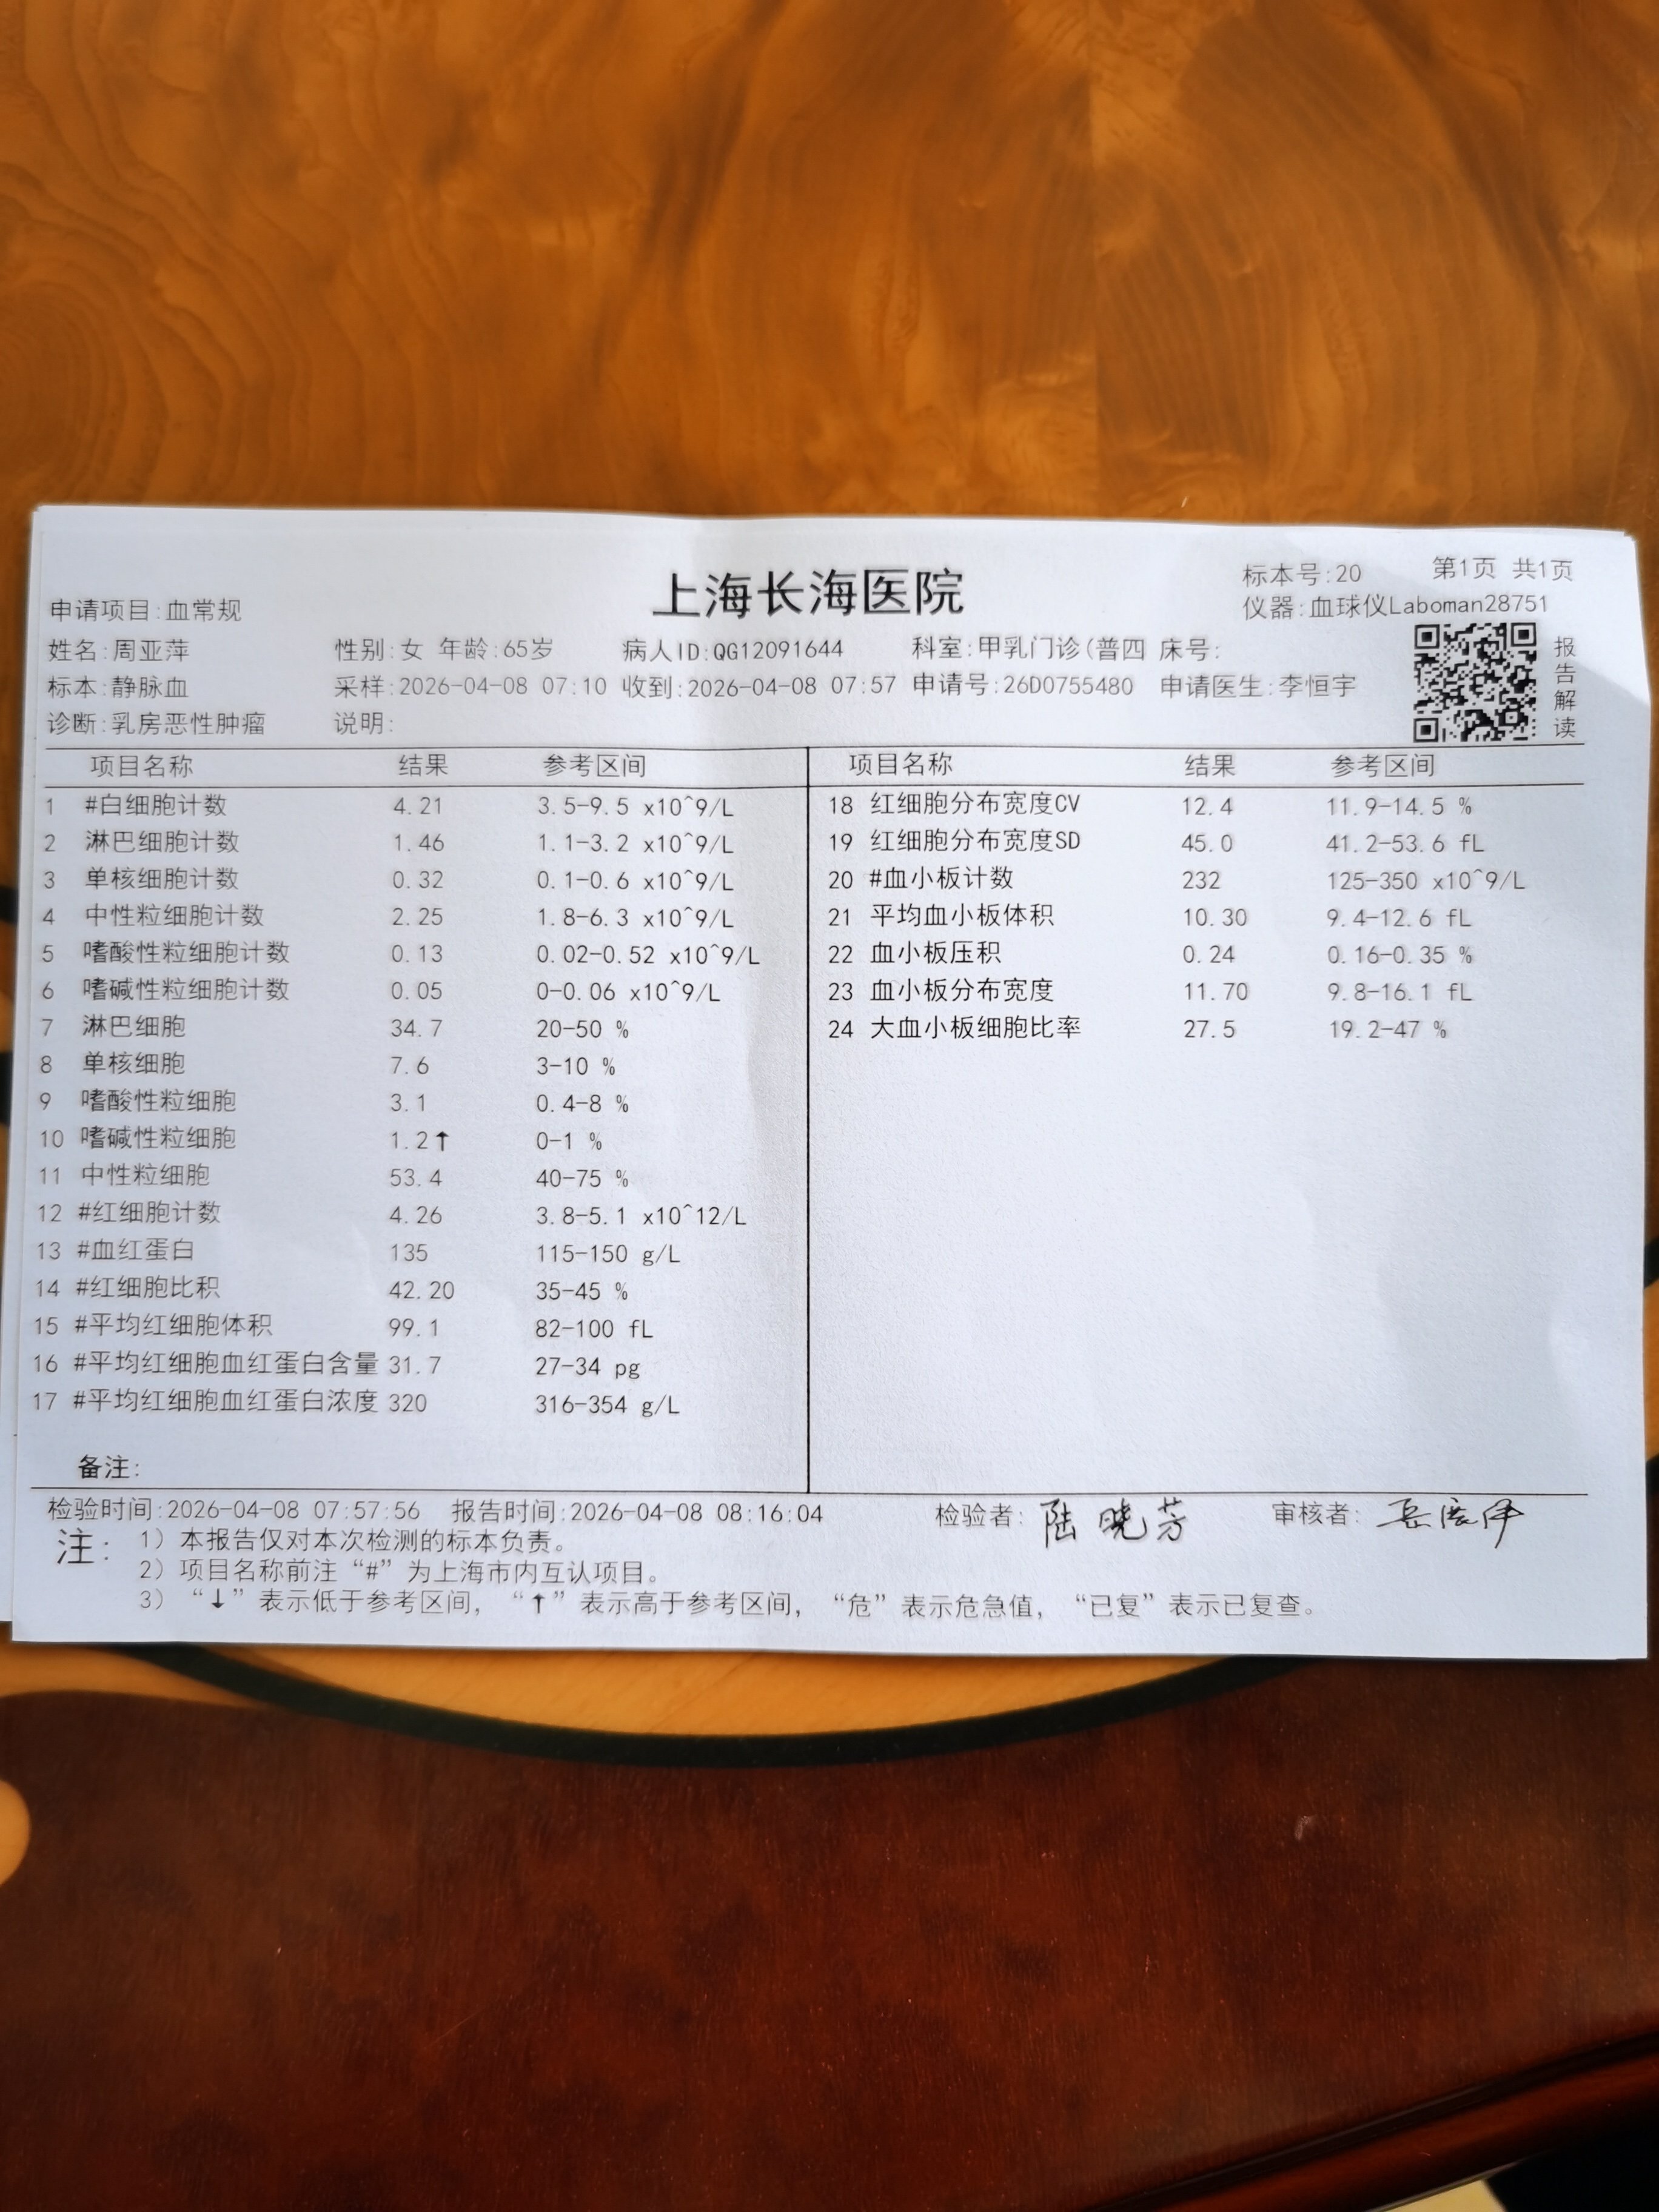 上海长海医院
标本号:20 第1页 共1页
申请项目:血常规
仪器:血球仪Laboman28751
姓名:周亚萍 性别:女 年龄:65岁 病人ID:QG12091644 科室:甲乳门诊(普四 床号:
标本:静脉血 采样:2026-04-08 07:10 收到:2026-04-08 07:57 申请号:26D0755480 申请医生:李恒宇
诊断:乳房恶性肿瘤 说明:
报告解读
项目名称 结果 参考区间
1 #白细胞计数 4.21 3.5-9.5 x10^9/L
2 淋巴细胞计数 1.46 1.1-3.2 x10^9/L
3 单核细胞计数 0.32 0.1-0.6 x10^9/L
4 中性粒细胞计数 2.25 1.8-6.3 x10^9/L
5 嗜酸性粒细胞计数 0.13 0.02-0.52 x10^9/L
6 嗜碱性粒细胞计数 0.05 0-0.06 x10^9/L
7 淋巴细胞 34.7 20-50 %
8 单核细胞 7.6 3-10 %
9 嗜酸性粒细胞 3.1 0.4-8 %
10 嗜碱性粒细胞 1.2↑ 0-1 %
11 中性粒细胞 53.4 40-75 %
12 #红细胞计数 4.26 3.8-5.1 x10^12/L
13 #血红蛋白 135 115-150 g/L
14 #红细胞比积 42.20 35-45 %
15 #平均红细胞体积 99.1 82-100 fL
16 #平均红细胞血红蛋白含量 31.7 27-34 pg
17 #平均红细胞血红蛋白浓度 320 316-354 g/L
项目名称 结果 参考区间
18 红细胞分布宽度CV 12.4 11.9-14.5 %
19 红细胞分布宽度SD 45.0 41.2-53.6 fL
20 #血小板计数 232 125-350 x10^9/L
21 平均血小板体积 10.30 9.4-12.6 fL
22 血小板压积 0.24 0.16-0.35 %
23 血小板分布宽度 11.70 9.8-16.1 fL
24 大血小板细胞比率 27.5 19.2-47 %
备注:
检验时间:2026-04-08 07:57:56 报告时间:2026-04-08 08:16:04 检验者: 陆晓芳 审核者:
注: 1) 本报告仅对本次检测的标本负责。
2) 项目名称前注“#”为上海市内互认项目。
3) “↓”表示低于参考区间, “↑”表示高于参考区间, “危”表示危急值, “已复”表示已复查。